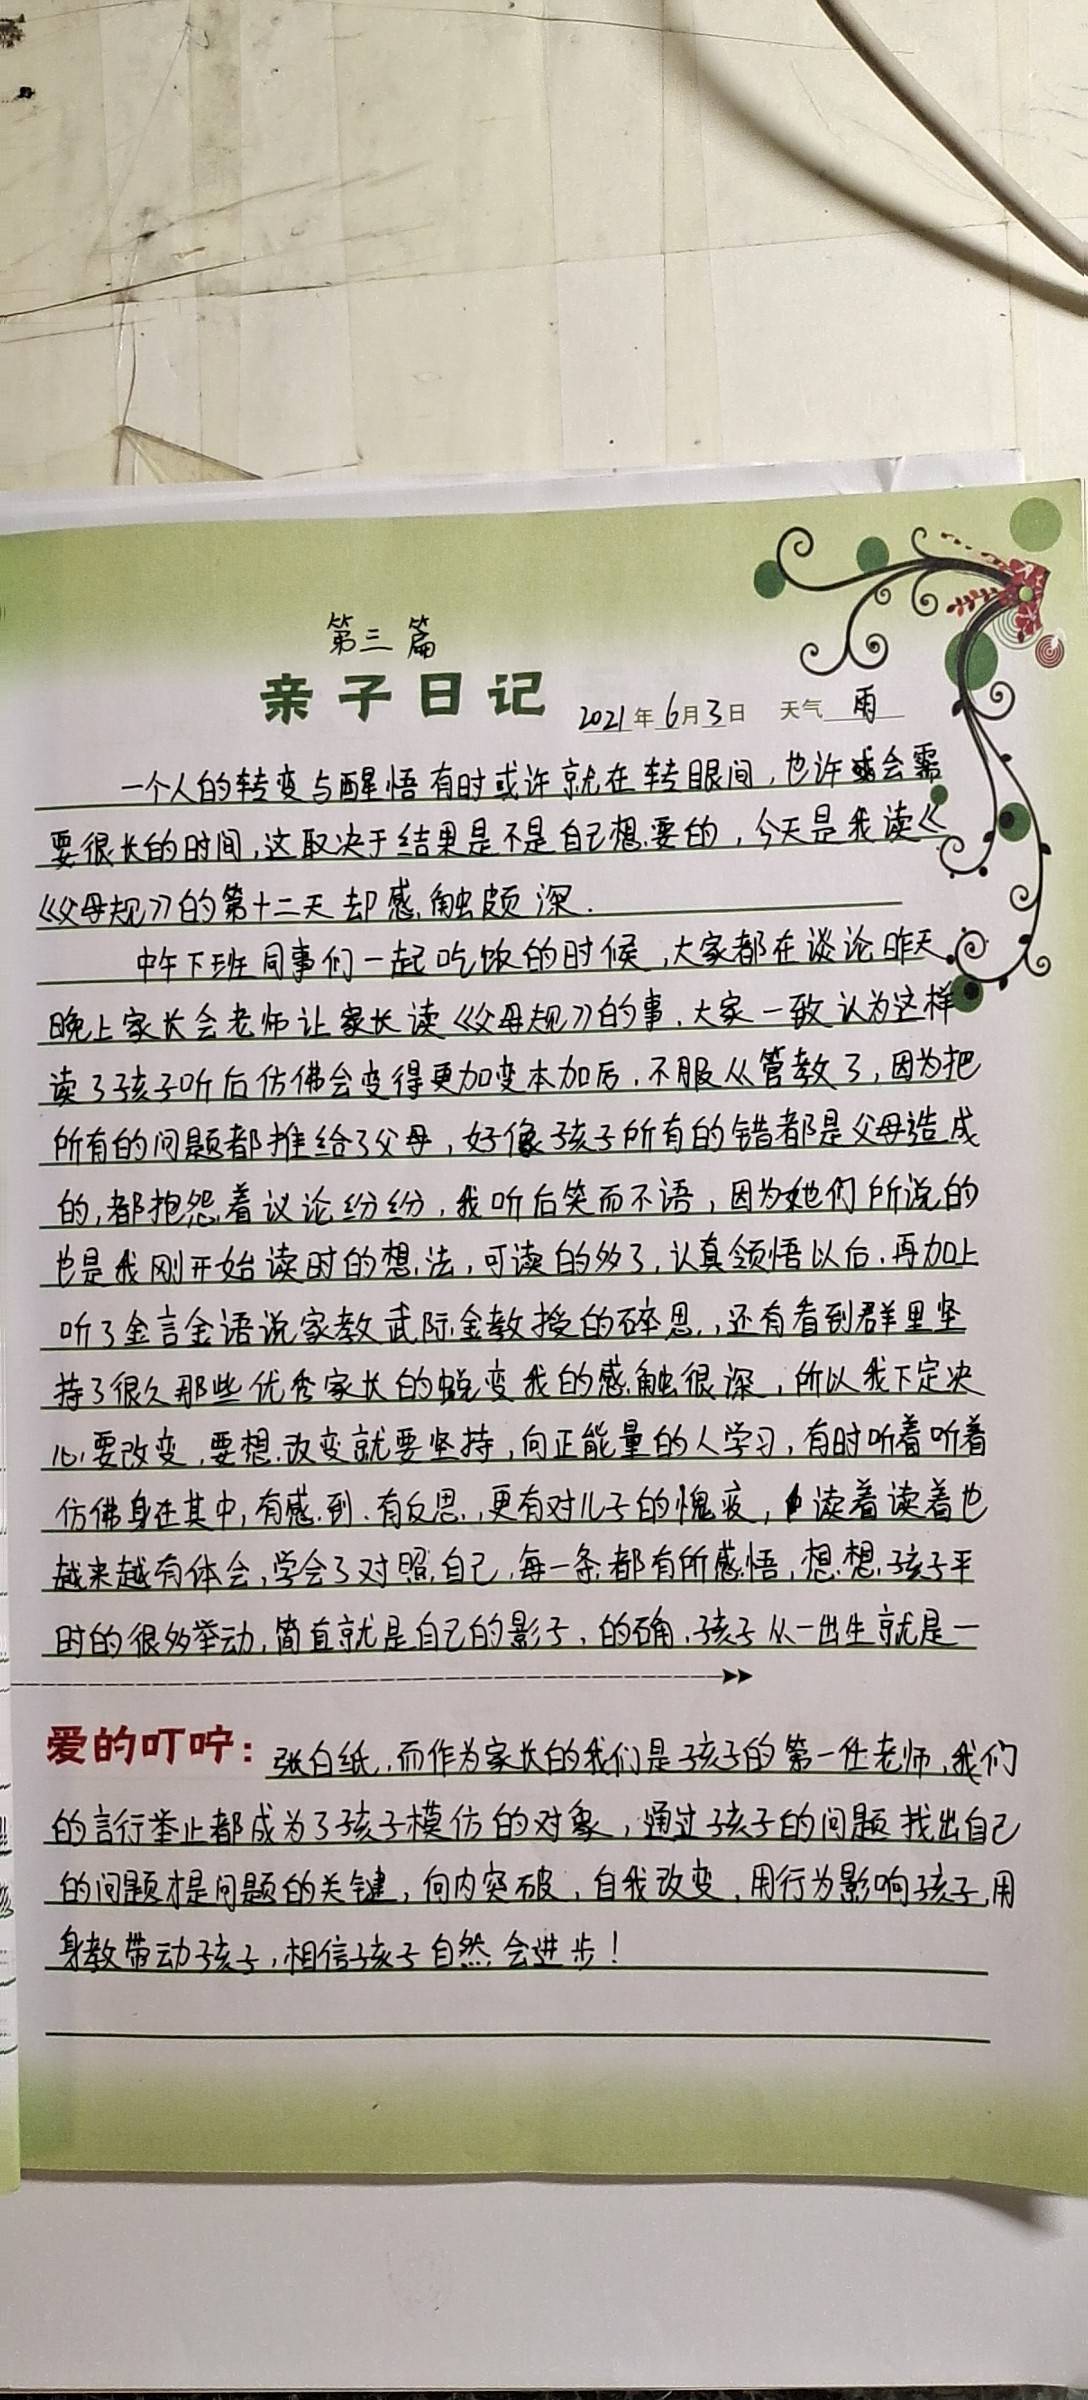 第三篇
亲子日记 2021年6月3日 天气 雨
一个人的转变与醒悟有时或许就在转眼间，也许会需
要很长的时间，这取决于结果是不是自己想要的，今天是我读《
《父母规》的第十二天却感触颇深.
中午下班同事们一起吃饭的时候，大家都在谈论昨天
晚上家长会老师让家长读《父母规》的事，大家一致认为这样
读了孩子听后仿佛会变得更加变本加后，不服从管教了，因为把
所有的问题都推给了父母，好像孩子所有的错都是父母造成
的，都抱怨着议论纷纷，我听后笑而不语，因为她们所说的
也是我刚开始读时的想法，可读的多了，认真领悟以后，再加上
听了金言金语说家教武际金教授的碎思，还有看到群里坚
持了很久那些优秀家长的蜕变我的感触很深，所以我下定决
心要改变，要想改变就要坚持，向正能量的人学习，有时听着听着
仿佛身在其中，有感到、有反思，更有对儿子的愧疚，读着读着也
越来越有体会，学会了对照自己，每一条都有所感悟，想想孩子平
时的很多举动，简直就是自己的影子，的确，孩子从一出生就是一
爱的叮咛：张白纸，而作为家长的我们是孩子的第一任老师，我们
的言行举止都成为了孩子模仿的对象，通过孩子的问题找出自己
的问题才是问题的关键，向内突破，自我改变，用行为影响孩子，用
身教带动孩子，相信孩子自然会进步！